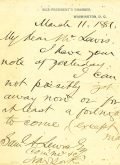 VICE PRESIDENT'S CHAMBER,
WASHINGTON, D. C.
March 11, 1881.
My dear Mr. Lewis
I have your
note of yesterday. I can
not possibly get
away now or for
at least a fortnight
to come (except